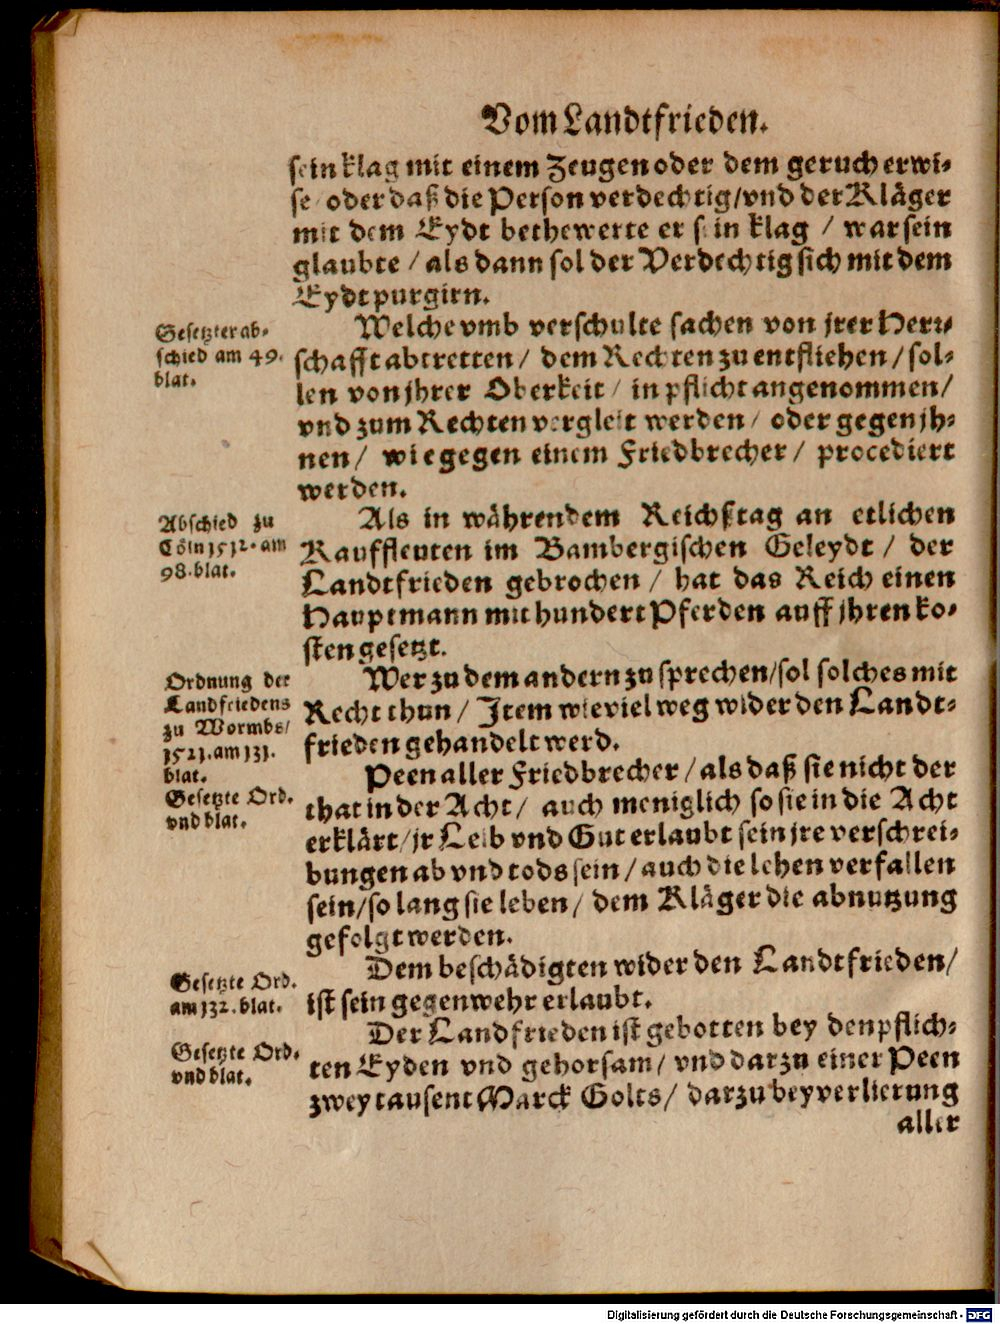 Vom Landtfrieden.
sein klag mit einem Zeugen oder dem geruch erwi-
se / oder daß die Person verdechtig / vnd der Kläger
mit dem Eydt bethewerte er sein klag / war sein
glaubte / als dann sol der Verdechtig sich mit dem
Eydt purgirn.
Gesetzter ab-
schied am 49.
blat.
Welche vmb verschulte sachen von jrer Herr-
schafft abtretten / dem Rechten zu entfliehen / sol-
len von jhrer Oberkeit / in pflicht angenommen /
vnd zum Rechten vergleit werden / oder gegen jh-
nen / wie gegen einem Friedbrecher / procediert
werden.
Abschied zu
Cöln 1512. am
98. blat.
Als in währendem Reichstag an etlichen
Kauffleuten im Bambergischen Geleydt / der
Landtfrieden gebrochen / hat das Reich einen
Hauptmann mit hundert Pferden auff jhren ko-
sten gesetzt.
Ordnung der
Landfriedens
zu Wormbs /
1521. am 131.
blat.
Wer zu dem andern zu sprechen / sol solches mit
Recht thun / Item wieviel weg wider den Landt-
frieden gehandelt werd.
Gesetzte Ord.
vnd blat.
Peen aller Friedbrecher / als daß sie nicht der
that in der Acht / auch meniglich so sie in die Acht
erklärt / jr Leib vnd Gut erlaubt sein jre verschrei-
bungen ab vnd tods sein / auch die lehen verfallen
sein / so lang sie leben / dem Kläger die abnutzung
gefolgt werden.
Gesetzte Ord.
am 132. blat.
Dem beschädigten wider den Landtfrieden /
ist sein gegenwehr erlaubt.
Gesetzte Ord.
vnd blat.
Der Landfrieden ist gebotten bey den pflich-
ten Eyden vnd gehorsam / vnd darzu einer Peen
zwey tausent Marck Golts / darzu bey verlierung
aller
Digitalisierung gefördert durch die Deutsche Forschungsgemeinschaft - DFG